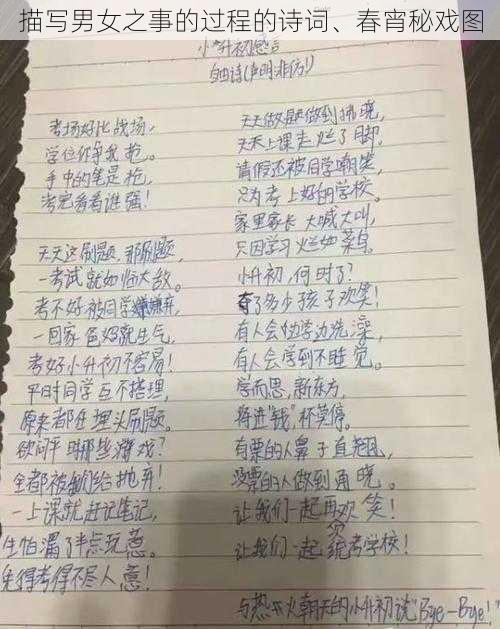 描写男女之事的过程的诗词、春宵秘戏图
小升初感言
自由诗(声明:非仿!)
考场好比战场,
学位你争我抢。
手中的笔是枪,
考完看看谁强!
天天这刷题,那刷题,
一考试就如临大敌。
考不好被同学嫌弃,
一回家爸妈就生气,
考好小升初不容易!
平时同学互不搭理,
原来都在埋头刷题。
欲问平时那些游戏?
全都被我们给抛弃!
一上课就赶记笔记,
生怕漏了半点玩意。
免得考得不尽人意!
天天做题做到拂晓,
天天上课走烂了脚。
请假还被同学嘲笑,
只为考上好的学校。
家里家长大喊大叫,
只因学习烂如菜鸟。
小升初,何时了?
夺了多少孩子欢笑!
有人会边学边洗澡,
有人会学到不睡觉。
学而思,新东方,
将进“钱”杯莫停。
有票的人鼻子直翘,
没票的人做到通晓。
让我们一起再欢笑!
让我们一起统考学校!
与热火朝天的小升初说“Bye-Bye!”